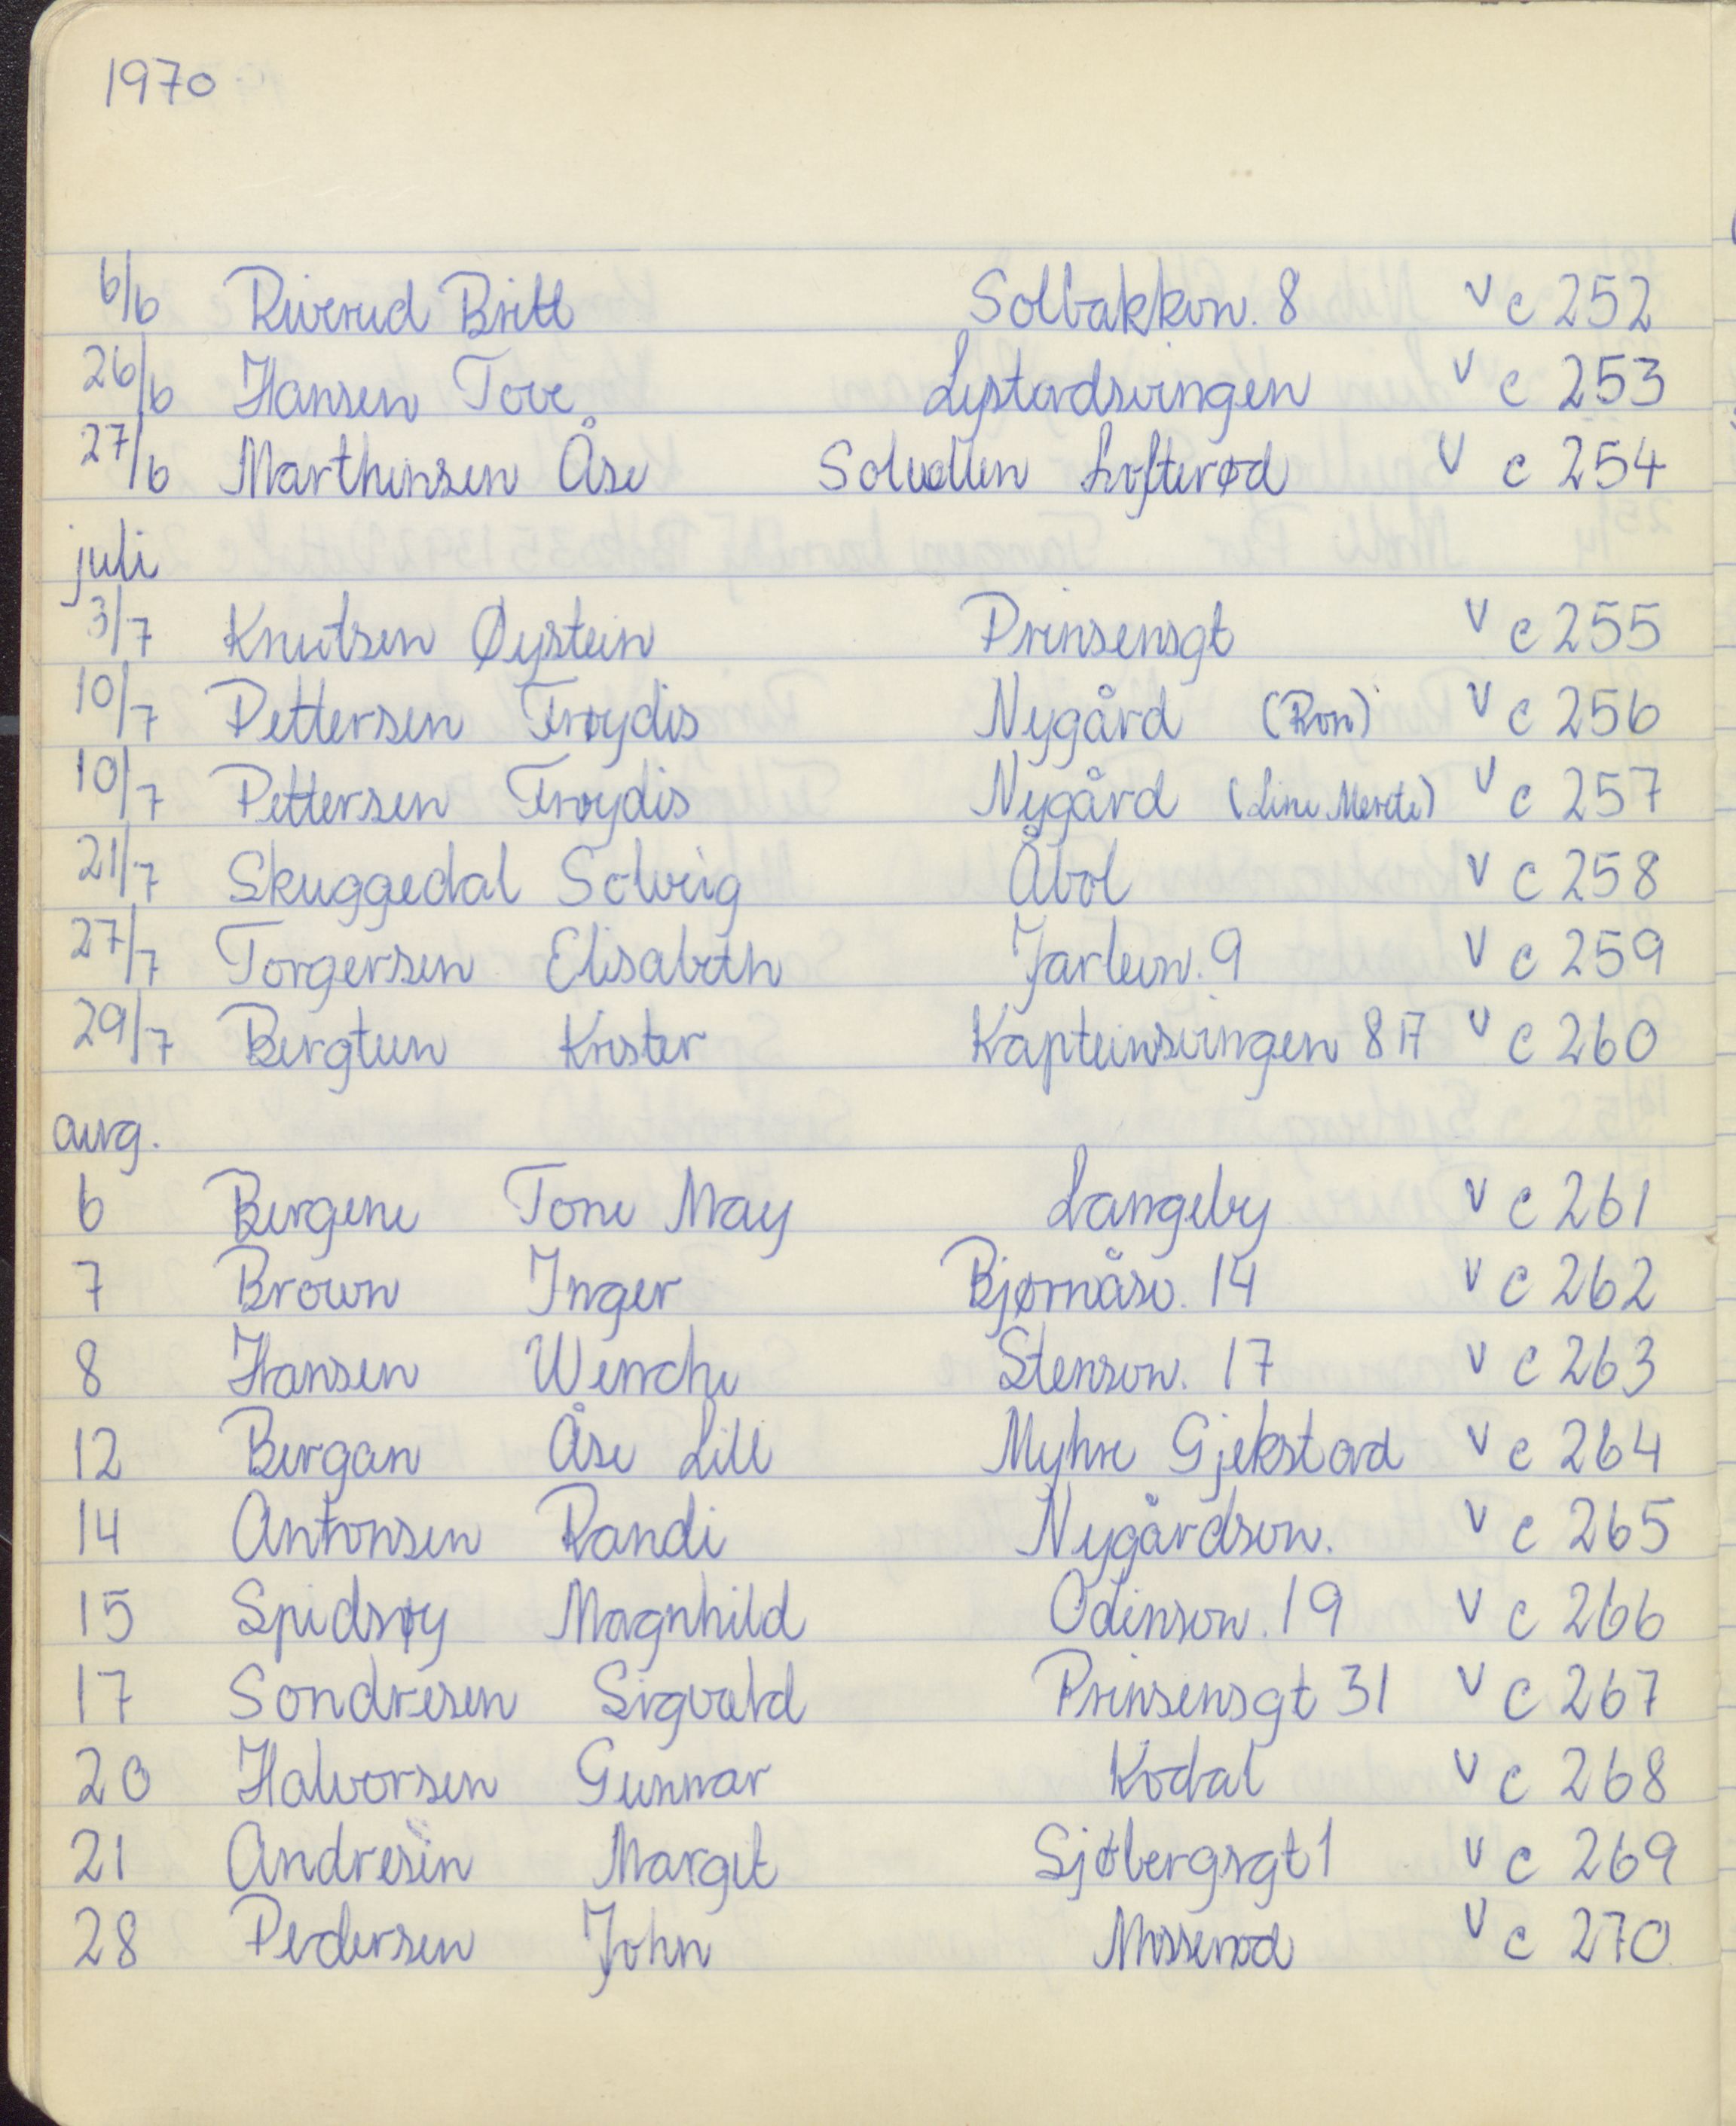 1970
6/6 Riverud Britt Solbakkvn. 8 v c 252
26/6 Hansen Tove Lystadsvingen v c 253
27/6 Marthinsen Åse Soludden Lofterød v c 254
juli
3/7 Knutsen Øystein Prinsensgt v c 255
10/7 Pettersen Frøydis Nygård (Ron) v c 256
10/7 Pettersen Frøydis Nygård (Line Merete) v c 257
21/7 Skuggedal Solveig Åbol v c 258
27/7 Torgersen Elisabeth Jarlevn. 9 v c 259
29/7 Bergtun Krister Kapteinsvingen 8A v c 260
aug.
6 Bergene Tone May Langeby v c 261
7 Brown Inger Bjørnåsv. 14 v c 262
8 Hansen Wenche Stensvn. 17 v c 263
12 Bergan Åse Lill Myhre Gjekstad v c 264
14 Antonsen Randi Nygårdsvn. v c 265
15 Spidsøy Magnhild Odinsvn. 19 v c 266
17 Sondresen Sigvald Prinsensgt 31 v c 267
20 Halvorsen Gunnar Kodal v c 268
21 Andresen Margit Sjøbergsgt 1 v c 269
28 Pedersen John Mosserød v c 270